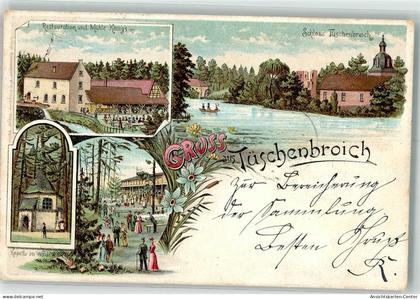 Restauration und Mühle
Schloss Tüschenbroich
GRUSS
aus Tüschenbroich
Zur Bereicherung
der Sammlung
Besten
K.
Kapelle im Walde
www.ansichtskarten-center.de
Ansichtskarten-Center